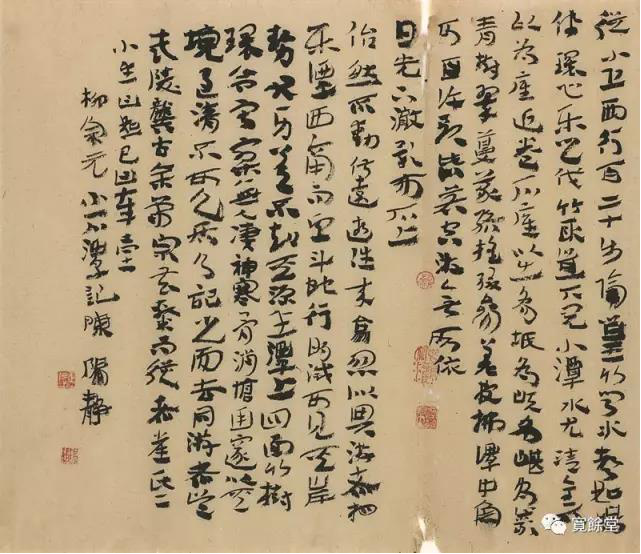 從小丘西行百二十步隔篁竹聞水聲如鳴
佩環心樂之伐竹取道下見小潭水尤清全石
以為底近岸卷石底以出為坻為嶼為嵁為巖
青樹翠蔓蒙絡搖綴參差披拂潭中魚
可百許頭皆若空游無所依
日光下澈影布石上
佁然不動俶爾遠逝往來翕忽似與游者相
樂潭西南而望斗蛇行明滅可見其岸
勢犬牙差不知其源坐潭上四面竹樹
環合寂寥無人淒神寒骨悄愴幽邃以其
境過清不可久居乃記之而去同游者吳
武陵龔古余弟宗玄隸而從者崔氏二
小生曰恕己曰奉壹
柳宗元 小石潭記 陳 靜
寬餘堂